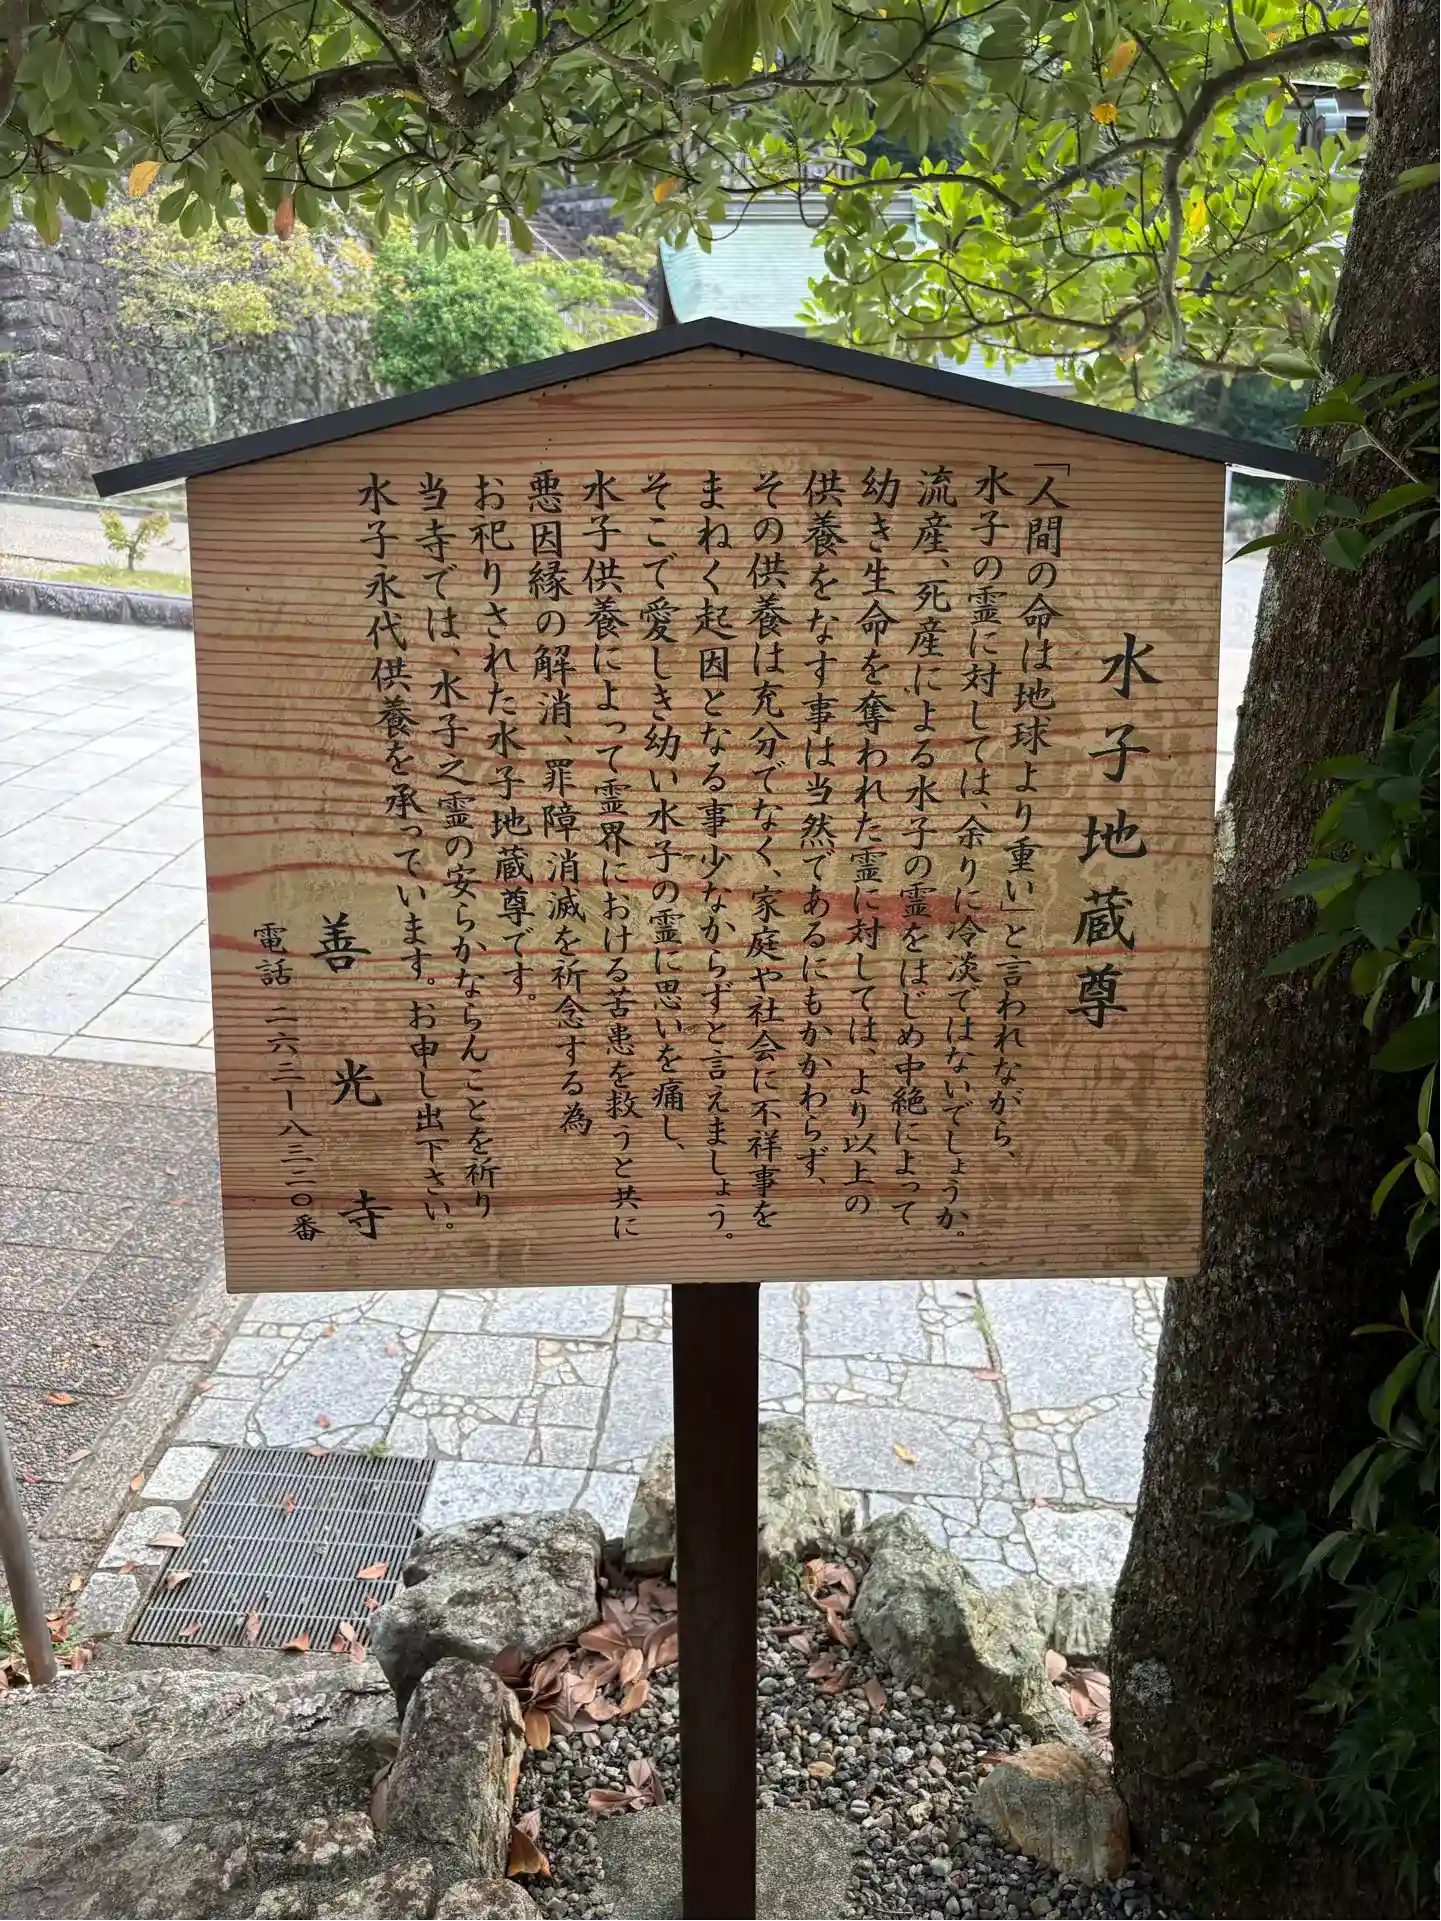 水子地蔵尊
「人間の命は地球より重い」と言われながら、
水子の霊に対しては、余りに冷淡ではないでしょうか。
流産、死産による水子の霊をはじめ中絶によって
幼き生命を奪われた霊に対しては、より以上の
供養をなす事は当然であるにもかかわらず、
その供養は充分でなく、家庭や社会に不祥事を
まねく起因となる事少なからずと言えましょう。
そこで愛しき幼い水子の霊に思いを痛し、
水子供養によって霊界における苦患を救うと共に
悪因縁の解消、罪障消滅を祈念する為
お祀りされた水子地蔵尊です。
当寺では、水子之霊の安らかならんことを祈り
水子永代供養を承っています。お申し出下さい。
善光寺
電話 二六三ー八三二〇番